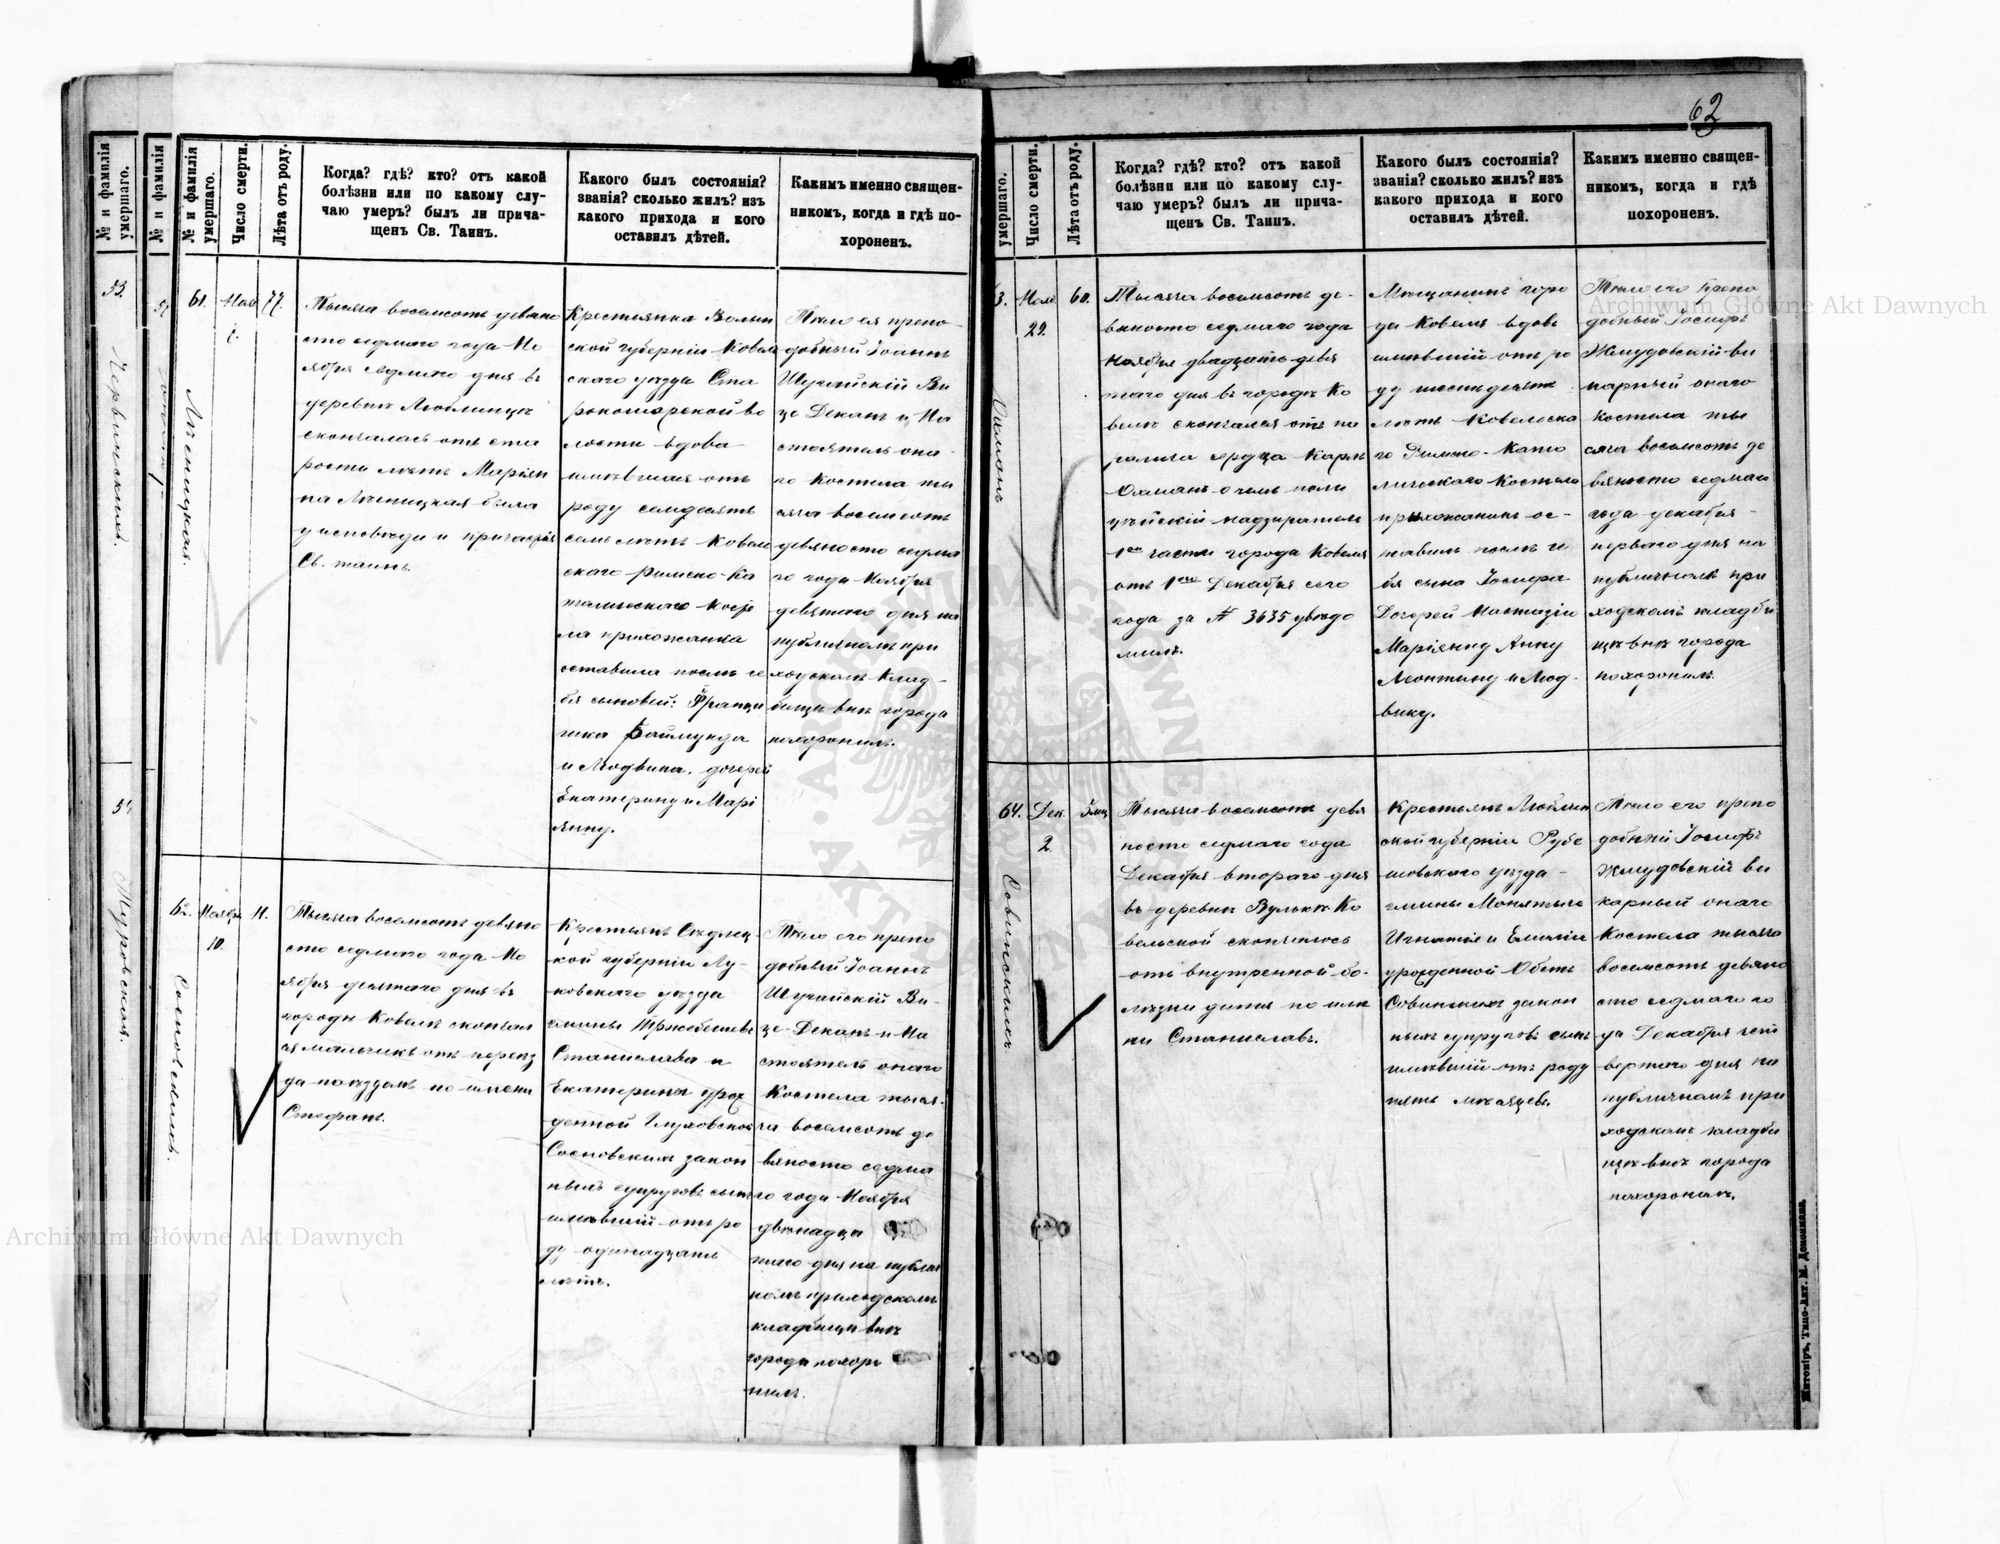 62
№ и фамилія умершаго.
№ и фамилія
№ и фамилія умершаго.
Число смерти.
Лѣта отъ роду.
Когда? гдѣ? кто? отъ какой
болѣзни или по какому слу-
чаю умеръ? былъ ли прича-
щенъ Св. Таинъ.
Какого былъ состоянія?
званія? сколько жилъ? изъ
какого прихода и кого
оставилъ дѣтей.
Какимъ именно священ-
никомъ, когда и гдѣ по-
хороненъ.
53.
Червинский.
54
Туровская.
61.
Лѣсницкая.
Нояб
77.
Тысяча восемсотъ девяно
сто седмого года Но
ября седмого дня въ
деревнѣ Люблинцѣ
скончалась отъ ста
рости лѣтъ Маріян
на Лѣсницкая была
у исповѣди и причастія
Св. таинъ.
Крестьянка Волын
ской губерніи Ковел
скаго уѣзда Ста
рокошарской во
лости вдова
имѣвшая отъ
роду семдесятъ
семь лѣтъ Ковел
скаго Римско-Ка
толическаго Косте
ла прихожанка
оставила послѣ се
бя сыновей: Франци
шка Раймунда
и Людвика, дочерей
Екатерину и Марі
янну.
Тѣло ея препо-
добный Іоаннъ
Шучайскій Ви
це Деканъ и На
стоятель она
го Костела ты
сяча восемсотъ
девяносто седма
го года Ноября
девятого дня на
публичномъ при
ходскомъ Клад-
бищи внѣ города
похоронилъ.
62.
Сосновскимъ.
Ноябр.
10.
11.
Тысяча восемсотъ девяно
сто седмого года Но
ября десятого дня въ
городѣ Ковелѣ скончал
ся мальчикъ отъ переѣз
да поѣздомъ по имени
Стефанъ.
Крестьянъ Сѣдлец
кой губерніи Лу-
ковскаго уѣзда
гмины Тржебешевъ
Станислава и
Екатерины урож
денной Глуховской
Сосновскихъ закон
ныхъ супруговъ сынъ
имѣвшій отъ ро
ду одинадцать
лѣтъ.
Тѣло его препо
добный Іоаннъ
Шучайскій Ви-
це-Деканъ и На
стоятель онаго
Костела тыся-
ча восемсотъ де
вяносто седма
го года Ноября
двѣнадца
того дня на публич
номъ приходскомъ
кладбищи внѣ
города похоро
нилъ.
умершаго.
Число смерти.
Лѣта отъ роду.
Когда? гдѣ? кто? отъ какой
болѣзни или по какому слу-
чаю умеръ? былъ ли прича-
щенъ Св. Таинъ.
Какого былъ состоянія?
званія? сколько жилъ? изъ
какого прихода и кого
оставилъ дѣтей.
Какимъ именно священ-
никомъ, когда и гдѣ
похороненъ.
3.
Охманъ
Нояб
29.
60.
Тысяча восемсотъ де-
вяносто седмаго года
Ноября двадцать девя
таго дня въ городѣ Ко
велѣ скончался отъ па
ралича сердца Карлъ
Охманъ о чемъ поли
цейскій надзиратель
1ой части города Ковеля
отъ 1го Декабря сего
года за № 3635 увѣдо
милъ.
Мѣщанинъ горо
да Ковеля вдовъ
имѣвшій отъ ро
ду шестьдесятъ
лѣтъ Ковельска
го Римско-Като
лическаго Костела
прихожанинъ ос-
тавилъ послѣ се
бя сына Іосифа
Дочерей Настазію
Маріянну Анну
Леонтину и Люд-
вику.
Тѣло его Препо
добный Іосифъ
Жмудовскій ви
карный онаго
Костела ты
сяча восемсотъ де
вяносто седмаго
года декабря
перваго дня на
публичномъ при
ходскомъ кладби
щѣ внѣ города
похоронилъ
64.
Совинскимъ
Дек.
2.
5 мц
Тысяча восемсотъ девя
носто седмаго года
Декабря второго дня
въ деревнѣ Вулькѣ Ко
вельской скончалось
отъ внутренной бо-
лѣзни дитя по име
ни Станиславъ.
Крестьянъ Люблин
ской губерніи Рубе
шовскаго уѣзда
гмины Монятыче
Игнатія и Емиліи
урожденной Обстъ
Совинскихъ закон
ныхъ супруговъ сынъ
имѣвшій отъ роду
пять мѣсяцевъ.
Тѣло его препо
добный Іосифъ
Жмудовскій ви
карный онаго
Костела тысяча
восемсотъ девяно
сто седмаго го
да Декабря чет
вертого дня на
публичномъ при
ходскомъ кладби
щѣ внѣ города
похоронилъ.
Житоміръ, Типо-Лит. М. Дененмана.
Archiwum Główne Akt Dawnych
Archiwum Główne Akt Dawnych